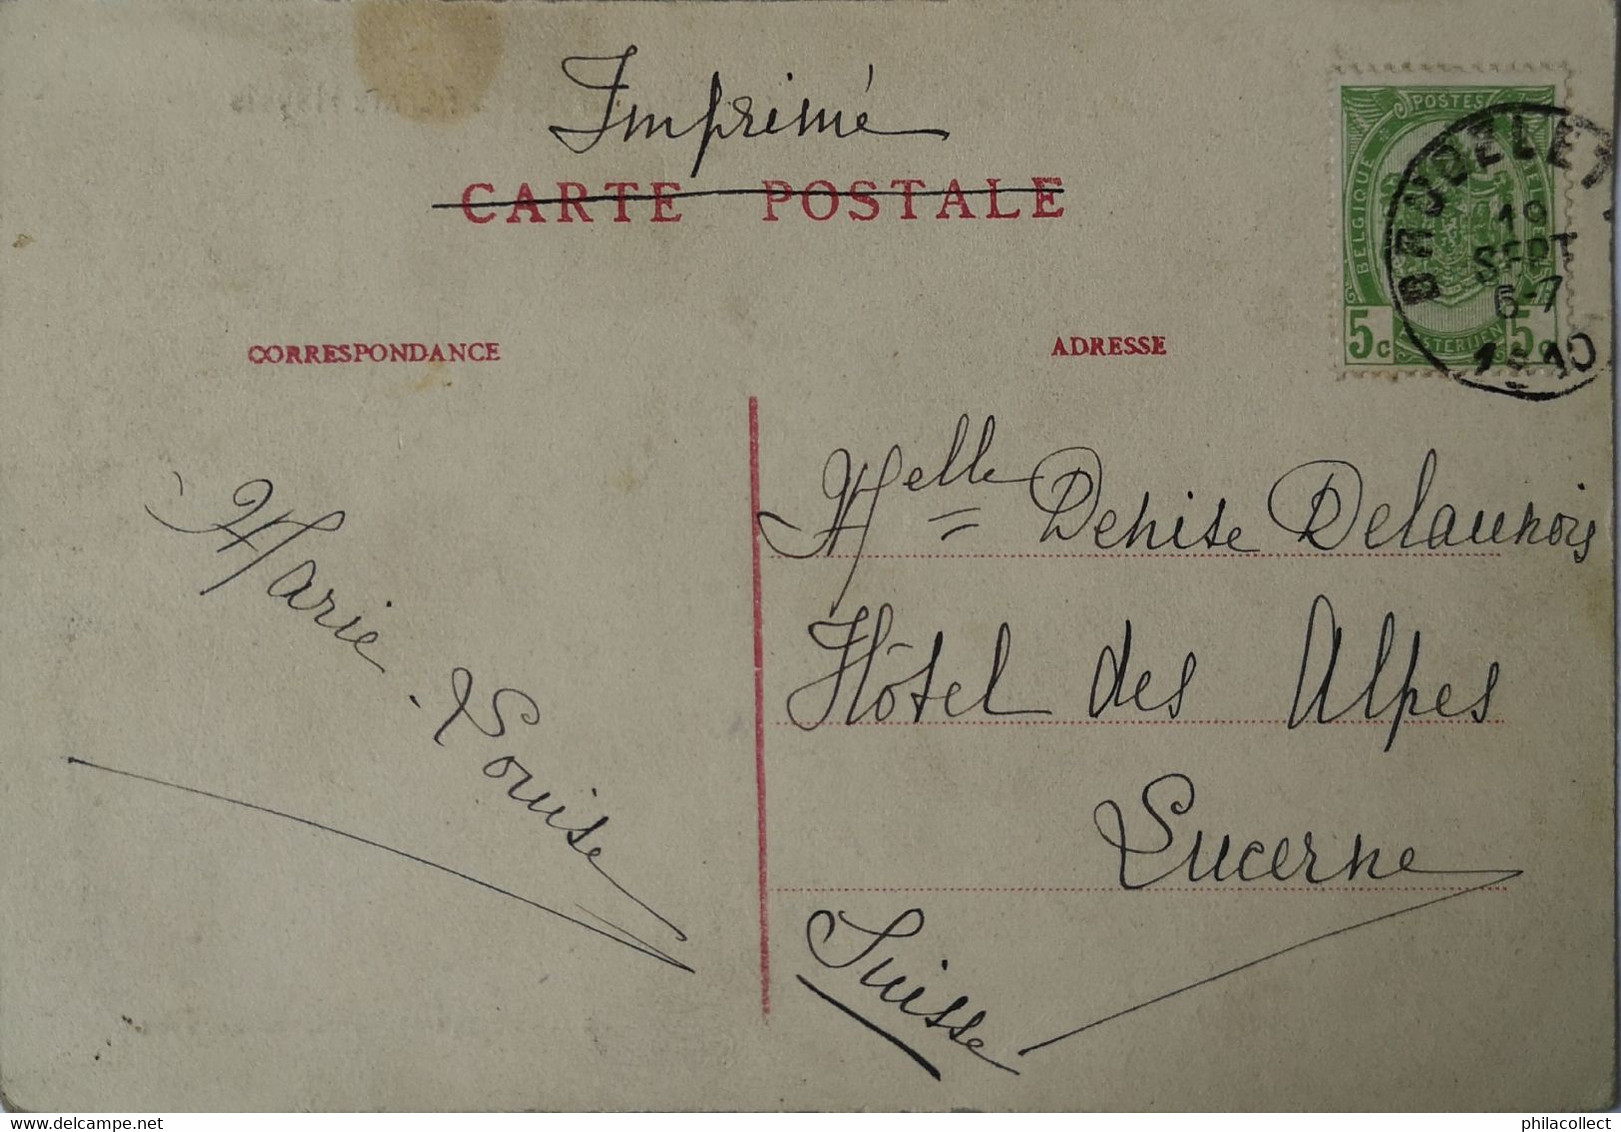 Imprimé
CARTE POSTALE
POSTES
BELGIQUE
5c
5c
BAUDELET
19
SEPT
6-7
1910
CORRESPONDANCE
ADRESSE
Marie-Louise
Melle Denise Delaunois
Hôtel des Alpes
Lucerne
Suisse
delcampe.net
philacollect